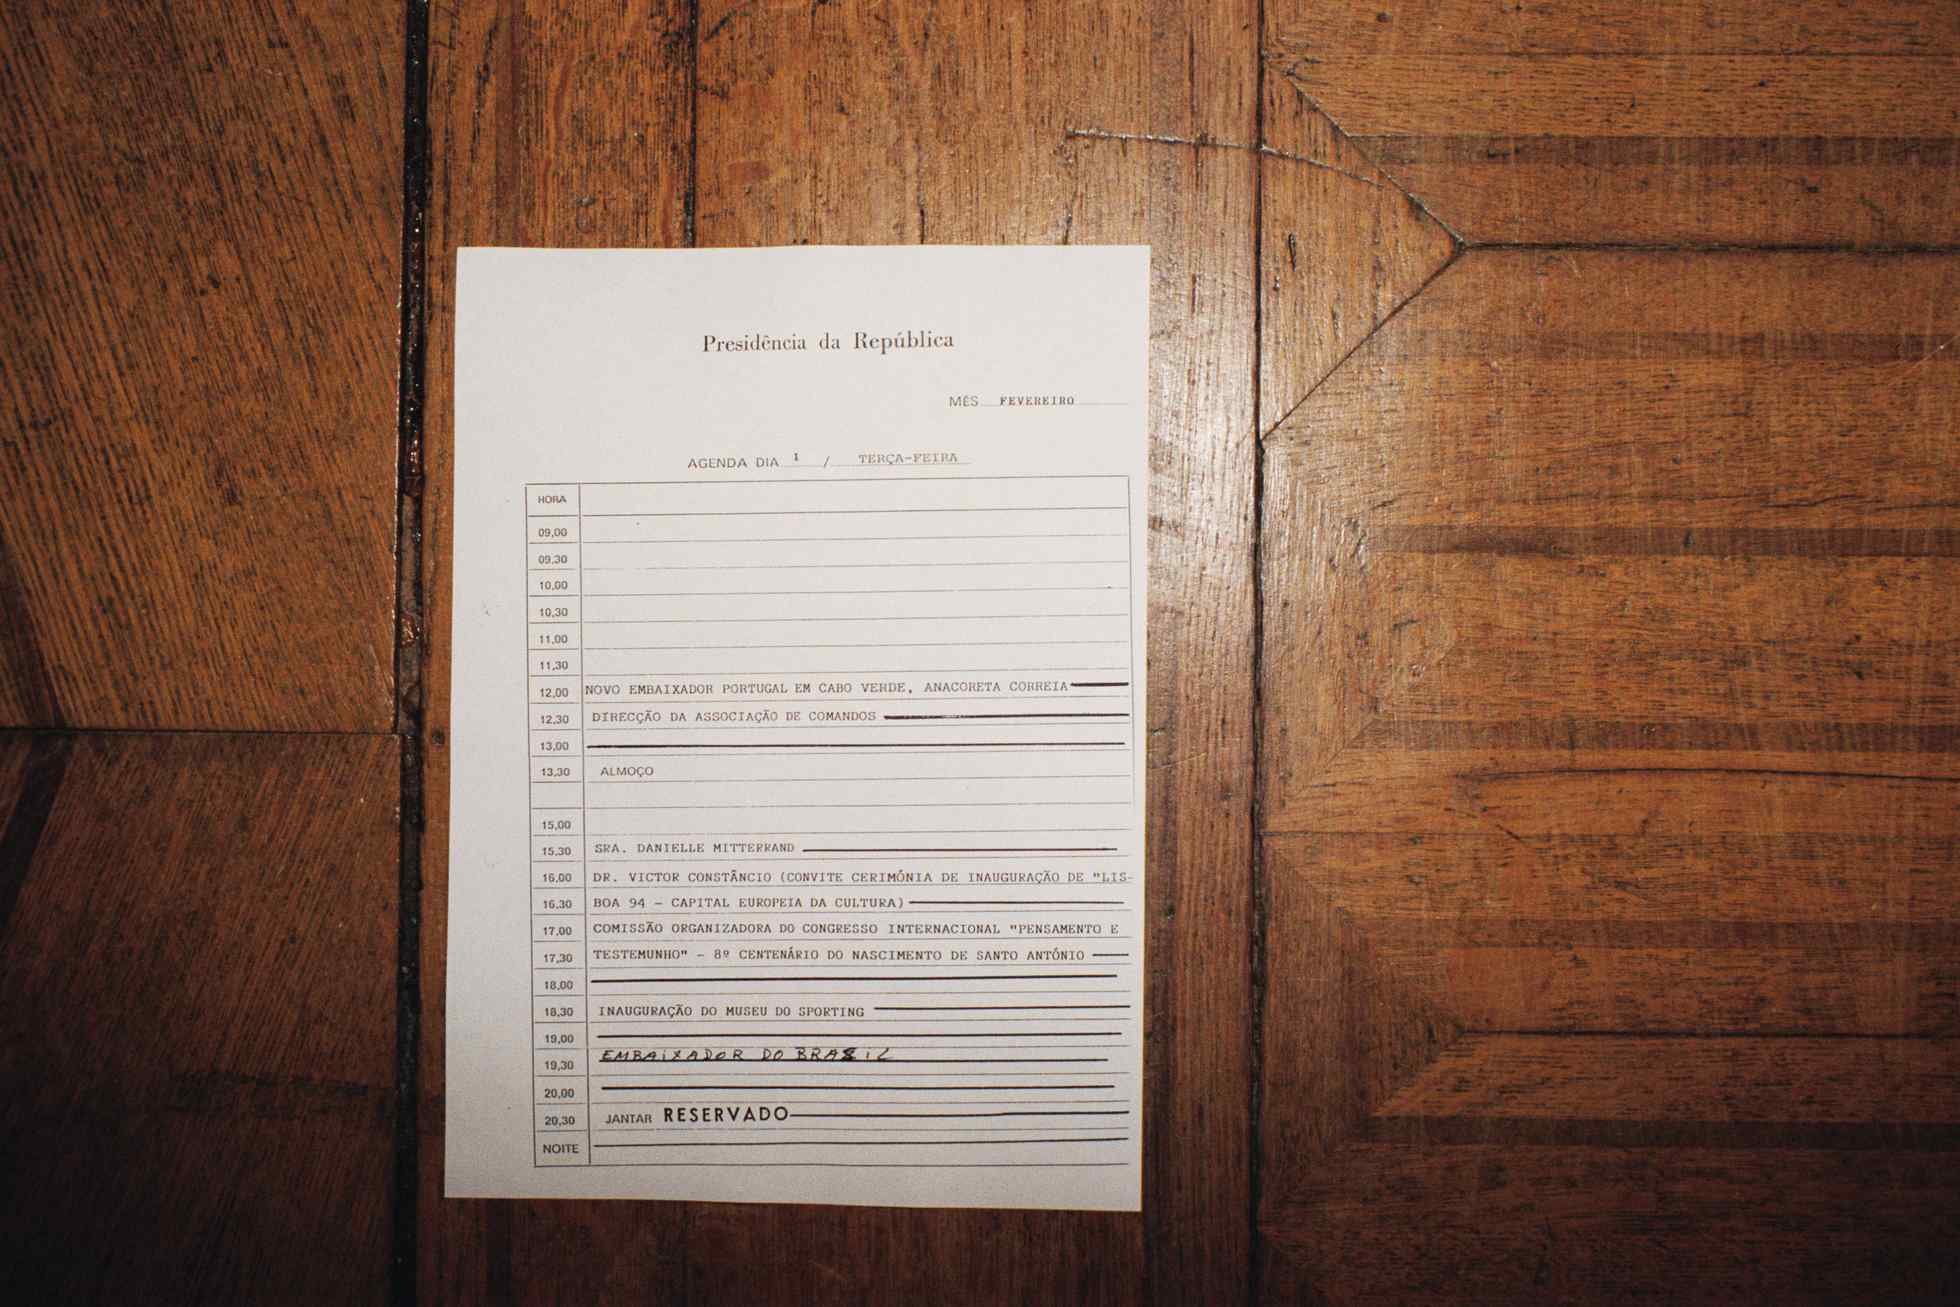 Presidência da República
MÊS FEVEREIRO
AGENDA DIA 1 / TERÇA-FEIRA
HORA
09,00
09,30
10,00
10,30
11,00
11,30
12,00 NOVO EMBAIXADOR PORTUGAL EM CABO VERDE, ANACORETA CORREIA
12,30 DIRECÇÃO DA ASSOCIAÇÃO DE COMANDOS
13,00
13,30 ALMOÇO
15,00
15,30 SRA. DANIELLE MITTERRAND
16,00 DR. VICTOR CONSTÂNCIO (CONVITE CERIMÓNIA DE INAUGURAÇÃO DE "LIS-
16,30 BOA 94 - CAPITAL EUROPEIA DA CULTURA)
17,00 COMISSÃO ORGANIZADORA DO CONGRESSO INTERNACIONAL "PENSAMENTO E
17,30 TESTEMUNHO" - 8º CENTENÁRIO DO NASCIMENTO DE SANTO ANTÓNIO
18,00
18,30 INAUGURAÇÃO DO MUSEU DO SPORTING
19,00
19,30 EMBAIXADOR DO BRASIL
20,00
20,30 JANTAR RESERVADO
NOITE